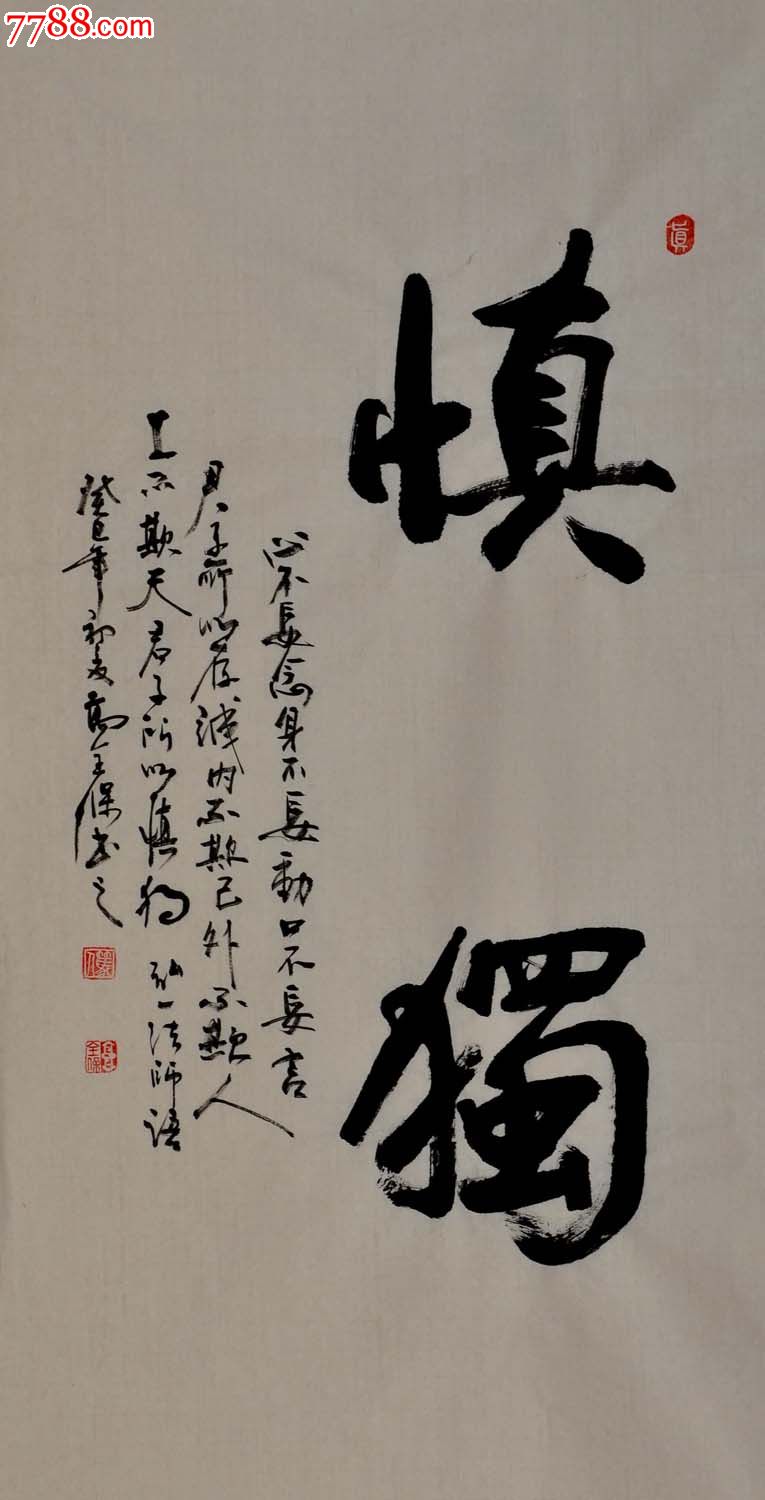 7788.com
慎獨
心不妄念身不妄動口不妄言
君子所以存誠内不欺己外不欺人
上不欺天君子所以慎独 弘一法師語
癸巳年初夏高全保书之
真